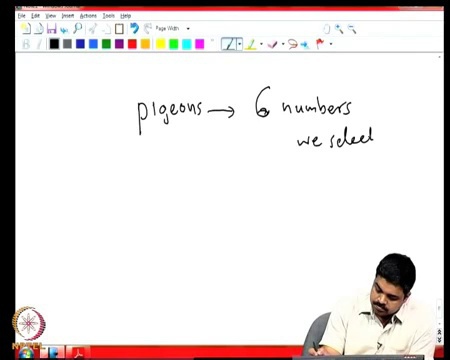 File Edit View Insert Actions Tools Help
Page Width
B I
pigeons → 6 numbers
we select